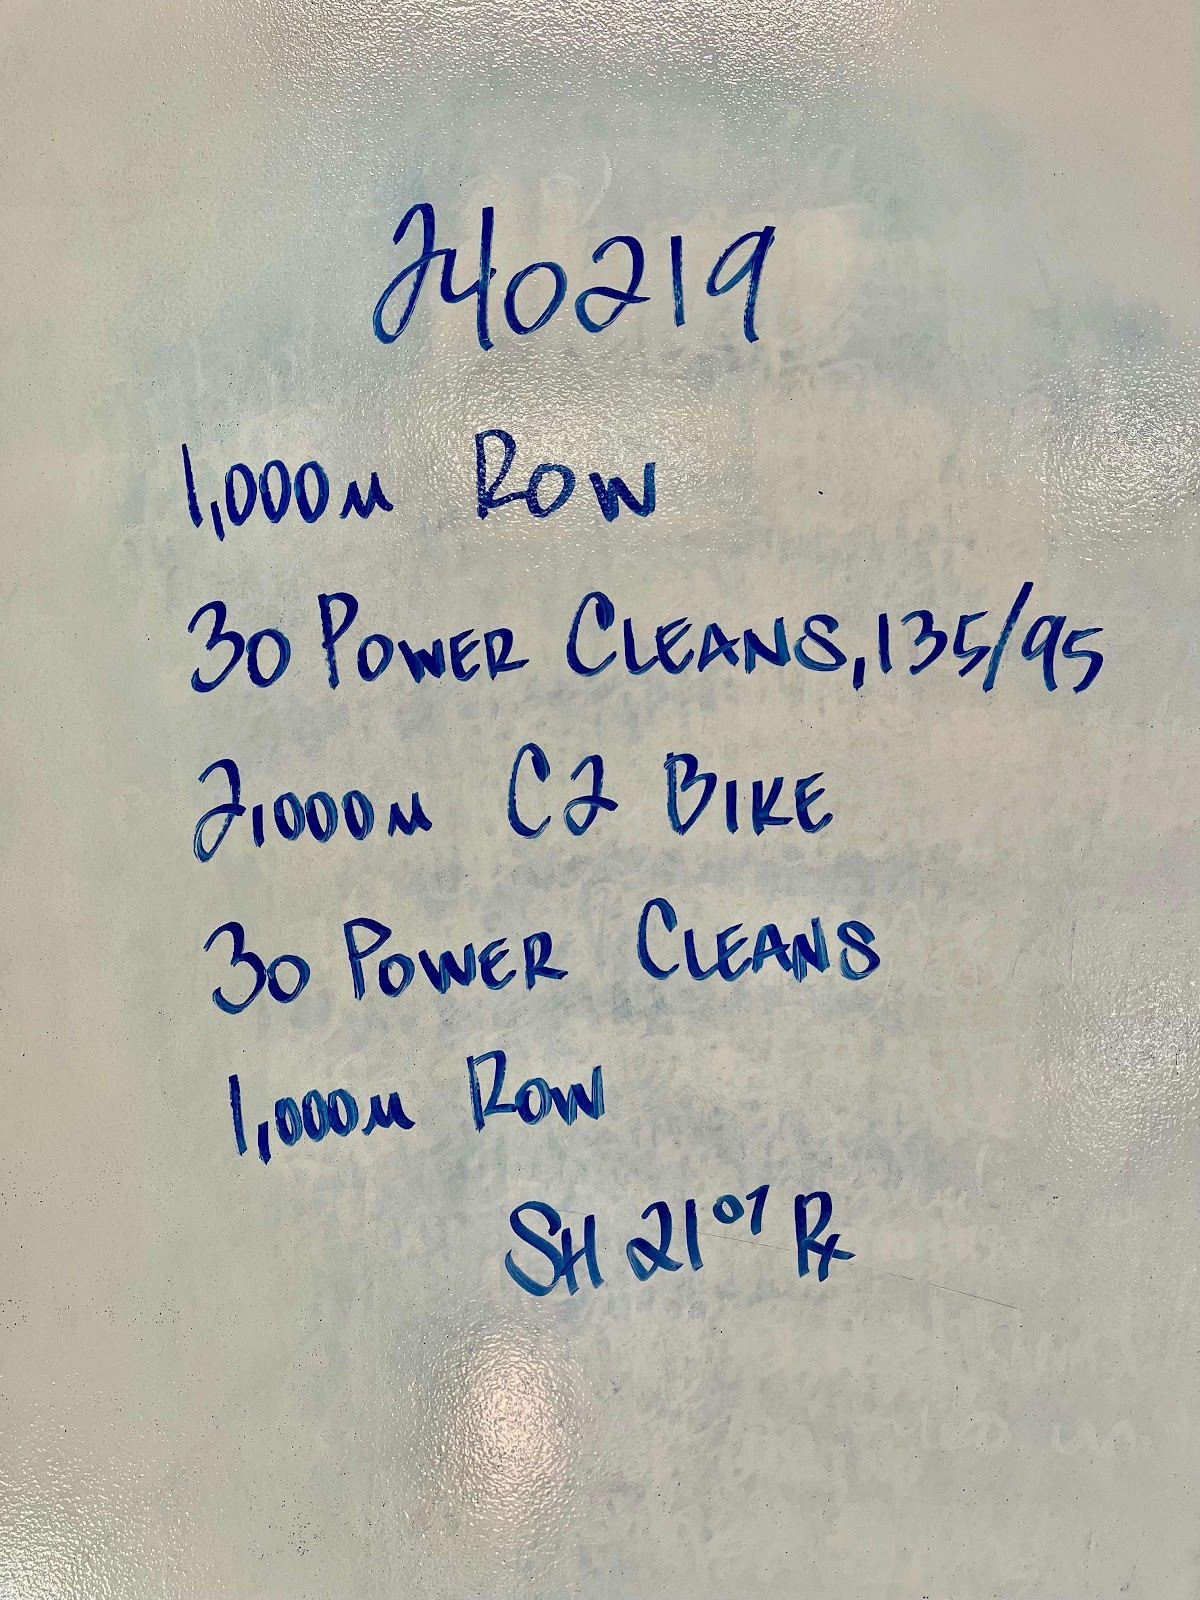 240219
1,000m Row
30 Power Cleans, 135/95
2,000m C2 Bike
30 Power Cleans
1,000m Row
SH 21⁰⁷ Rx